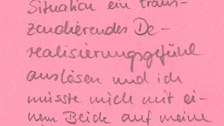 Situation ein trans-
zendierendes De-
realisierungsgefühl
auslösen und ich
müsste mich mit ei-
nem Blick auf meine